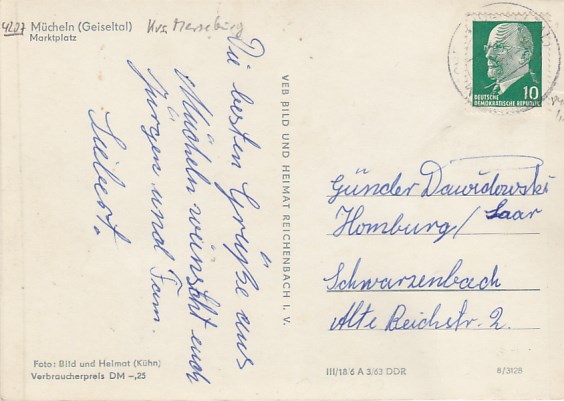 4207 Mücheln (Geiseltal) Krs. Merseburg
Marktplatz
Die besten Grüße aus
Mücheln wünscht euch
Jürgen und Fam.
Siebert.
Foto: Bild und Heimat (Kühn)
Verbraucherpreis DM -,25
VEB BILD UND HEIMAT REICHENBACH I. V.
10
DEUTSCHE
DEMOKRATISCHE REPUBLIK
Günder Dawidowski
Homburg/Saar
Schwarzenbach
Alte Reichstr. 2.
III/18/6 A 3/63 DDR
6/3128